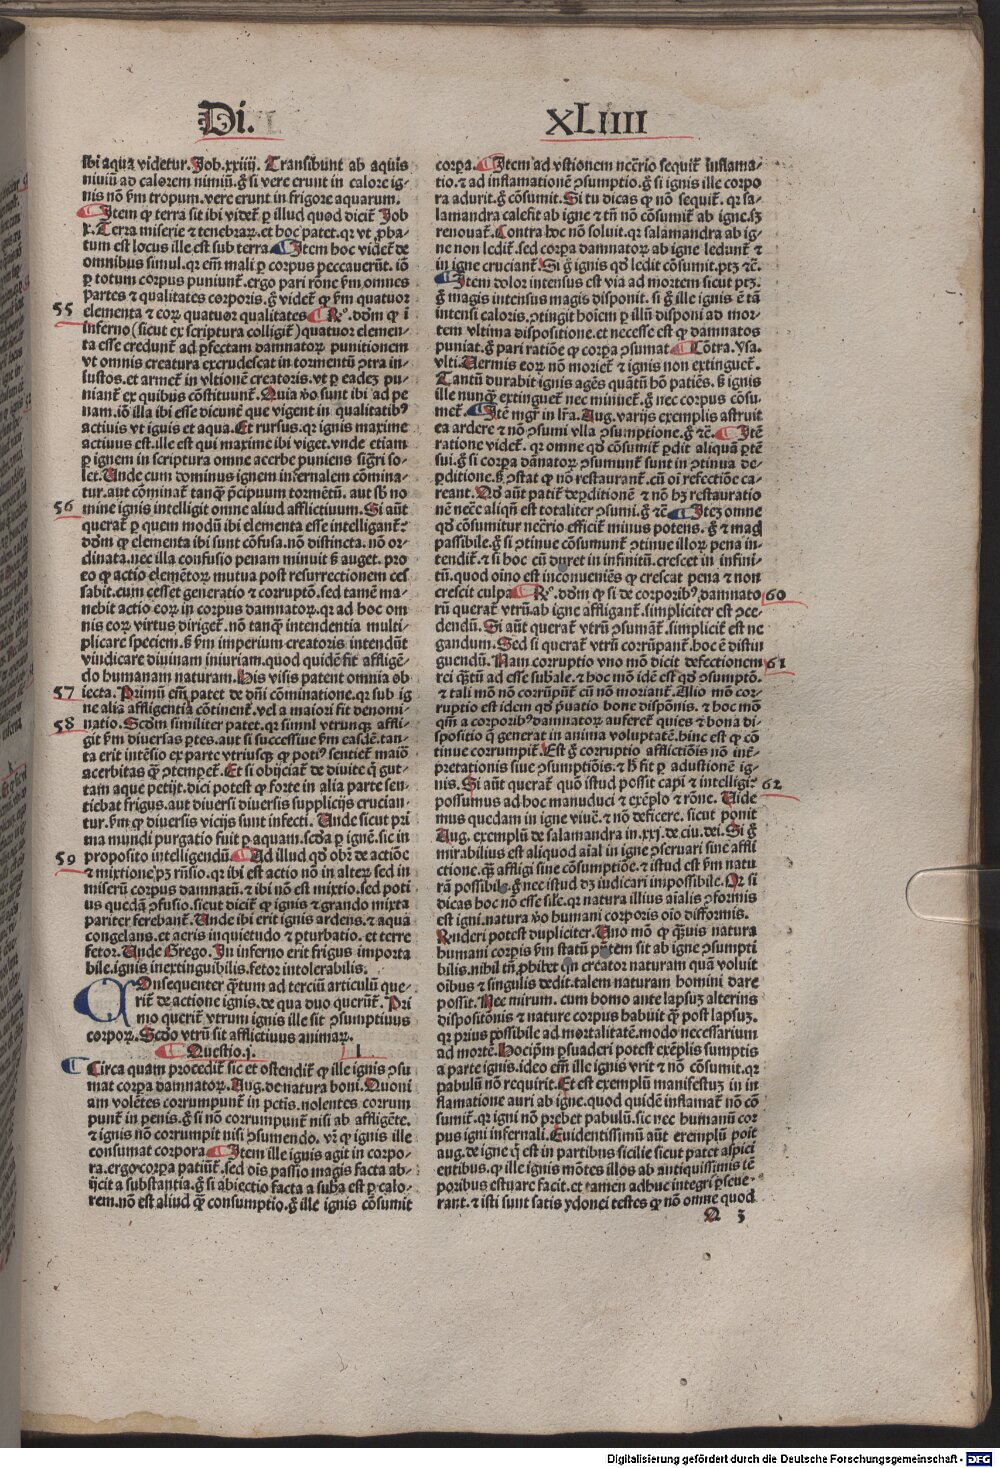 Di.
XLIIII
ibi aqua videtur. Job. xxiiij. Transibunt ab aquis
niuiũ ad calorem nimiũ. g̃ si vere erunt in calore ig⸗
nis nõ ẽm tropum. vere erunt in frigore aquarum.
Item ꝙ terra sit ibi videt̃ ꝑ illud quod dicit̃ Job
x. Terra miserie ⁊ tenebraꝝ. et hoc patet. qꝛ vt ꝓba⸗
tum est locus ille est sub terra Item hoc videt̃ de
omnibus simul. qꝛ em̃ mali ꝑ corpus peccauerũt. iõ
ꝑ totum corpus puniunt̃. ergo pari rõne ẽm omnes
partes ⁊ qualitates corporis. g̃ videt̃ ꝙ ẽm quatuor
55
elementa ⁊ eoꝝ quatuor qualitates Rº. dõm ꝙ ĩ
inferno (sicut ex scriptura colligit̃) quatuor elemen⸗
ta esse credunt̃ ad ꝑfectam damnatoꝝ punitionem
vt omnis creatura excrudescat in tormentũ ꝯtra in⸗
iustos. et armet̃ in vltionẽ creatoris. vt ꝑ eadeꝫ pu⸗
niant̃ ex quibus cõstituunt̃. Quia v̊o sunt ibi ad pe
nam. iõ illa ibi esse dicunt̃ que vigent in qualitatibꝰ
actiuis vt iguis et aqua. Et rursus. qꝛ ignis maxime
actiuus est. ille est qui maxime ibi viget. vnde etiam
ꝑ ignem in scriptura omne acerbe puniens sigr̃i so⸗
let. Unde cum dominus ignem infernalem cõmina⸗
tur. aut cõminat̃ tanq̃ p̃cipuum tormẽtũ. aut sb̃ no
56
mine ignis intelligit omne aliud afflictiuum. Si aũt
querat̃ ꝑ quem modũ ibi elementa esse intelligant̃:
dõm ꝙ elementa ibi sunt cõfusa. nõ distincta. nõ or⸗
dinata. nec illa confusio penam minuit ß auget. pro
eo ꝙ actio elemẽtoꝝ mutua post resurrectionem ces
sabit. cum cesset generatio ⁊ corruptõ. sed tamẽ ma⸗
nebit actio eoꝝ in corpus damnatoꝝ. qꝛ ad hoc om
nis eoꝝ virtus diriget̃. nõ tanq̃ intendentia multi⸗
plicare speciem. ß ẽm imperium creatoris intendũt
vindicare diuinam iniuriam. quod quidẽ fit affligẽ⸗
do humanam naturam. His visis patent omnia ob
57
iecta. Primũ em̃ patet de dñi cõminatione. qꝛ sub ig
ne alia affligentia cõtinent̃. vel a maiori fit denomi⸗
58
natio. Scõm similiter patet. qꝛ simul vtrunqꝫ affli⸗
git ẽm diuersas ꝑtes. aut si successiue ẽm easdẽ. tan⸗
ta erit intẽsio ex parte vtriusqꝫ ꝙ potiꝰ sentiet̃ maiõ
acerbitas q̃ ꝯtempet̃. Et si obijciat̃ de diuite q̃ gut⸗
tam aque petijt. dici potest ꝙ forte in alia parte sen⸗
tiebat frigus. aut diuersi diuersis supplicijs crucian⸗
tur. ẽm ꝙ diuersis vicijs sunt infecti. Unde sicut pri
ma mundi purgatio fuit ꝑ aquam. scd̃a ꝑ ignẽ. sic in
59
proposito intelligendũ Ad illud qd̃ obꝛ̃ de actiõe
⁊ mixtione pꝫ rñsio. qꝛ ibi est actio nõ in alteꝝ sed in
miserũ corpus damnatũ. ⁊ ibi nõ est mixtio. sed poti
us quedã ꝯfusio. sicut dicit̃ ꝙ ignis ⁊ grando mixta
pariter ferebant̃. Unde ibi erit ignis ardens. ⁊ aqua
congelans. et aeris inquietudo ⁊ ꝑturbatio. et terre
fetor. Unde Grego. In inferno erit frigus importa
bile. ignis inextinguibilis. fetor intolerabilis.
COnsequenter q̃tum ad terciũ articulũ que⸗
rit̃ de actione ignis. de qua duo querũt̃. Pri
mo querit̃ vtrum ignis ille sit ꝯsumptiuus
corpoꝝ. Scd̃o vtrũ sit afflictiuus animaꝝ.
Questio. j. I
Circa quam procedit̃ sic et ostendit̃ ꝙ ille ignis ꝯsu
mat corꝑa damnatoꝝ. Aug. de natura boni. Quoni
am volẽtes corrumpunt̃ in pctĩs. nolentes corrum
punt̃ in penis. g̃ si nõ corrumpunt̃ nisi ab affligẽte.
⁊ ignis nõ corrumpit nisi ꝯsumendo. vr̃ ꝙ ignis ille
consumat corpora Item ille ignis agit in corpo⸗
ra. ergo corꝑa patiũt̃. sed oĩs passio magis facta ab⸗
ijcit a substantia. g̃ si abiectio facta a suba est ꝑ calo⸗
rem. nõ est aliud q̃ consumptio. g̃ ille ignis cõsumit
corꝑa. Item ad vstionem nec̃rio sequit̃ inflama⸗
tio. ⁊ ad inflamationẽ ꝯsumptio. g̃ si ignis ille corpo
ra adurit. g̃ cõsumit. Si tu dicas ꝙ nõ sequit̃. qꝛ sa⸗
lamandra calefit ab igne ⁊ tñ nõ cõsumit̃ ab igne. sꝫ
renouat̃. Contra hoc nõ soluit. qꝛ salamandra ab ig⸗
ne non ledit̃. sed corꝑa damnatoꝝ ab igne ledunt̃ ⁊
in igne cruciant̃. Si g̃ ignis qd̃ ledit cõsumit. ptꝫ ⁊c̃.
Item dolor intensus est via ad mortem sicut ptꝫ.
g̃ magis intensus magis disponit. si g̃ ille ignis ẽ tã
intensi caloris. ꝯtingit hoĩem ꝑ illũ disponi ad mor⸗
tem vltima dispositione. et necesse est ꝙ damnatos
puniat. g̃ pari ratiõe ꝙ corꝑa ꝯsumat Cõtra. ysa.
vlti. Vermis eoꝝ nõ moriet̃ ⁊ ignis non extinguet̃.
Tantũ durabit ignis agẽs quãtũ hõ patiẽs. ß ignis
ille nunq̃ extinguet̃ nec minuet̃. g̃ nec corpus cõsu⸗
met̃. Itẽ mgr̃ in lr̃a. Aug. varijs exemplis astruit
ea ardere ⁊ nõ ꝯsumi vlla ꝯsumptione. g̃ ⁊c̃ Itẽ
ratione videt̃. qꝛ omne qd̃ cõsumit̃ ꝑdit aliquã ꝑtẽ
sui. g̃ si corꝑa dãnatoꝝ ꝯsumunt̃ sunt in ꝯtinua de⸗
ꝑditione. ß ꝯstat ꝙ nõ restaurant̃. cũ oĩ refectiõe ca⸗
reant. Qd̃ aũt patit̃ deꝑditionẽ ⁊ nõ hꝫ restauratio
nẽ nec̃e aliqñ est totaliter ꝯsumi. g̃ ⁊c̃ Iteꝫ omne
qd̃ cõsumitur nec̃rio efficit̃ minus potens. g̃ ⁊ mag̃
passibile. g̃ si ꝯtinue cõsumunt̃ ꝯtinue illoꝝ pena in⸗
tendit̃. ⁊ si hoc cũ duret in infinitũ. crescet in infini⸗
tũ. quod oĩno est inconueniẽs ꝙ crescat pena ⁊ non
60
crescit culpa Rº. dõm ꝙ si de corporibꝰ damnato
rũ querat̃ vtrũ ab igne affligant̃. simpliciter est ꝯce⸗
dendũ. Si aũt querat̃ vtrũ ꝯsumãt̃. simplicit̃ est ne
gandum. Sed si querat̃ vtrũ corrũpant̃. hoc ẽ distin
61
guendũ. Nam corruptio vno mõ dicit defectionem
rei q̃tũ ad esse subale. ⁊ hoc mõ idẽ est qd̃ ꝯsumptõ.
⁊ tali mõ nõ corrũpũt̃ cũ nõ moriant̃. Alio mõ cor⸗
ruptio est idem qd̃ p̃uatio bone dispõnis. ⁊ hoc mõ
qm̃ a corporibꝰ damnatoꝝ auferet̃ quies ⁊ bona di⸗
spositio q̃ generat in anima voluptatẽ. hinc est ꝙ cõ
tinue corrumpit̃. Est g̃ corruptio afflictiõis nõ int̃⸗
pretationis siue ꝯsumptiõis. ⁊ h̃ fit ꝑ adustionẽ ig⸗
62
nis. Si aũt querat̃ quõ istud possit capi ⁊ intelligi:
possumus ad hoc manuduci ⁊ exẽplo ⁊ rõne. Vide
mus quedam in igne viuẽ. ⁊ nõ deficere. sicut ponit
Aug. exemplũ de salamandra in. xxj. de ciu. dei. Si g̃
mirabilius est aliquod aĩal in igne ꝯseruari sine affli
ctione. q̃ affligi sine cõsumptiõe. ⁊ istud est ẽm natu
rã possibile. g̃ nec istud dꝫ iudicari impossibile. Qꝛ si
dicas hoc nõ esse sile. qꝛ natura illius aĩalis ꝯformis
est igni. natura v̊o humani corporis oĩo difformis.
Rñderi potest dupliciter. Uno mõ ꝙ q̃uis natura
humani corꝑis ẽm statũ p̃ñtem sit ab igne ꝯsumpti
bilis. nihil tñ ꝓhibet qñ creator naturam quã voluit
oĩbus ⁊ singulis dedit. talem naturam homini dare
possit. Nec mirum. cum homo ante lapsuꝫ alterius
dispositõnis ⁊ nature corpus habuit q̃ post lapsuꝫ.
qꝛ prius possibile ad mortalitatẽ. modo necessarium
ad mortẽ. Hoc ip̃m ꝑsuaderi potest exẽplis sumptis
a parte ignis. ideo em̃ ille ignis vrit ⁊ nõ cõsumit. qꝛ
pabulũ nõ requirit. Et est exemplũ manifestuꝫ in in
flamatione auri ab igne. quod quidẽ inflamat̃ nõ cõ
sumit̃. qꝛ igni nõ prebet pabulũ. sic nec humanũ cor
pus igni infernali. Euidentissimũ aũt exemplũ poĩt
aug. de igne q̃ est in partibus sicilie sicut patet aspici
entibus. ꝙ ille ignis mõtes illos ab antiquissimis tẽ
poribus estuare facit. et tamen adhuc integri ꝑseue⸗
rant. ⁊ isti sunt satis ydonei testes ꝙ nõ omne quod
Q 3
Digitalisierung gefördert durch die Deutsche Forschungsgemeinschaft - DFG